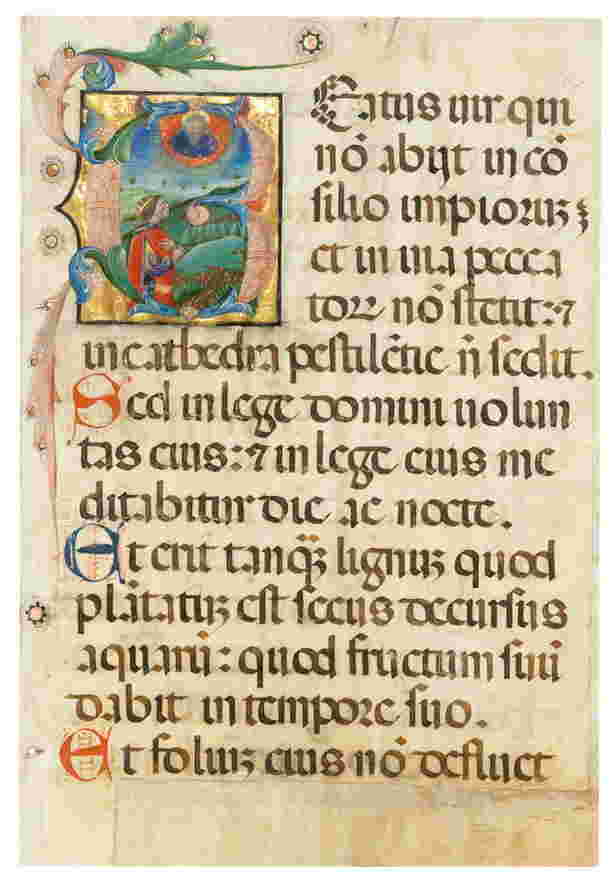 Beatus uir qui
nō abijt in cō
silio impioruꝫ ⁏
et in uia pecca
toꝝ nō stetit: ⁊
in cathedra pestilētie n̄ sedit.
Sed in lege domini uolun
tas eius: ⁊ in lege eius me
ditabitur die ac nocte.
Et erit tanqꝫ lignuꝫ quod
plātatuꝫ est secus decursus
aquarū: quod fructum suū
dabit in tempore suo.
Et foliuꝫ eius nō defluet